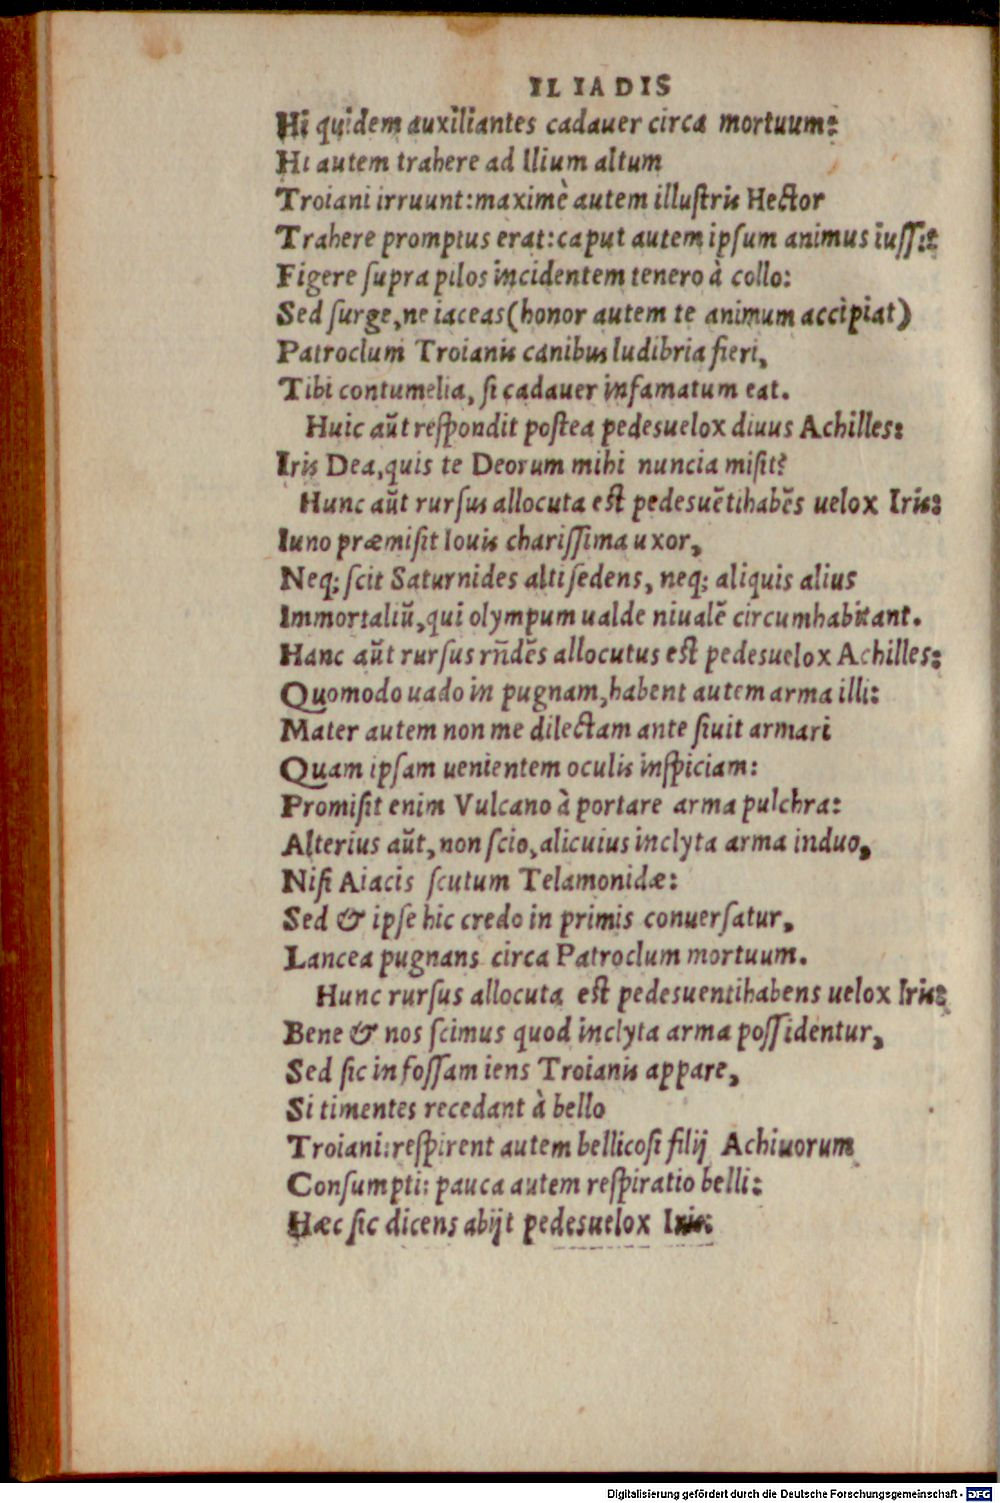 ILIADIS
Hi quidem auxiliantes cadauer circa mortuum:
Hi autem trahere ad Ilium altum
Troiani irruunt: maximè autem illustris Hector
Trahere promptus erat: caput autem ipsum animus iussit
Figere supra pilos incidentem tenero à collo:
Sed surge, ne iaceas (honor autem te animum accipiat)
Patroclum Troianis canibus ludibria fieri,
Tibi contumelia, si cadauer infamatum eat.
Huic aũt respondit postea pedesuelox diuus Achilles:
Iris Dea, quis te Deorum mihi nuncia misit?
Hunc aũt rursus allocuta est pedesuẽtihabẽs uelox Iris:
Iuno præmisit Iouis charissima uxor,
Neq; scit Saturnides altisedens, neq; aliquis alius
Immortaliũ, qui olympum ualde niualẽ circumhabitant.
Hanc aũt rursus rñdẽs allocutus est pedesuelox Achilles:
Quomodo uado in pugnam, habent autem arma illi:
Mater autem non me dilectam ante siuit armari
Quam ipsam uenientem oculis inspiciam:
Promisit enim Vulcano à portare arma pulchra:
Alterius aũt, non scio, alicuius inclyta arma induo,
Nisi Aiacis scutum Telamonidæ:
Sed & ipse hic credo in primis conuersatur,
Lancea pugnans circa Patroclum mortuum.
Hunc rursus allocuta est pedesuentihabens uelox Iris:
Bene & nos scimus quod inclyta arma possidentur,
Sed sic in fossam iens Troianis appare,
Si timentes recedant à bello
Troiani: respirent autem bellicosi filij Achiuorum
Consumpti: pauca autem respiratio belli:
Hæc sic dicens abijt pedesuelox Iris:
Digitalisierung gefördert durch die Deutsche Forschungsgemeinschaft - DFG